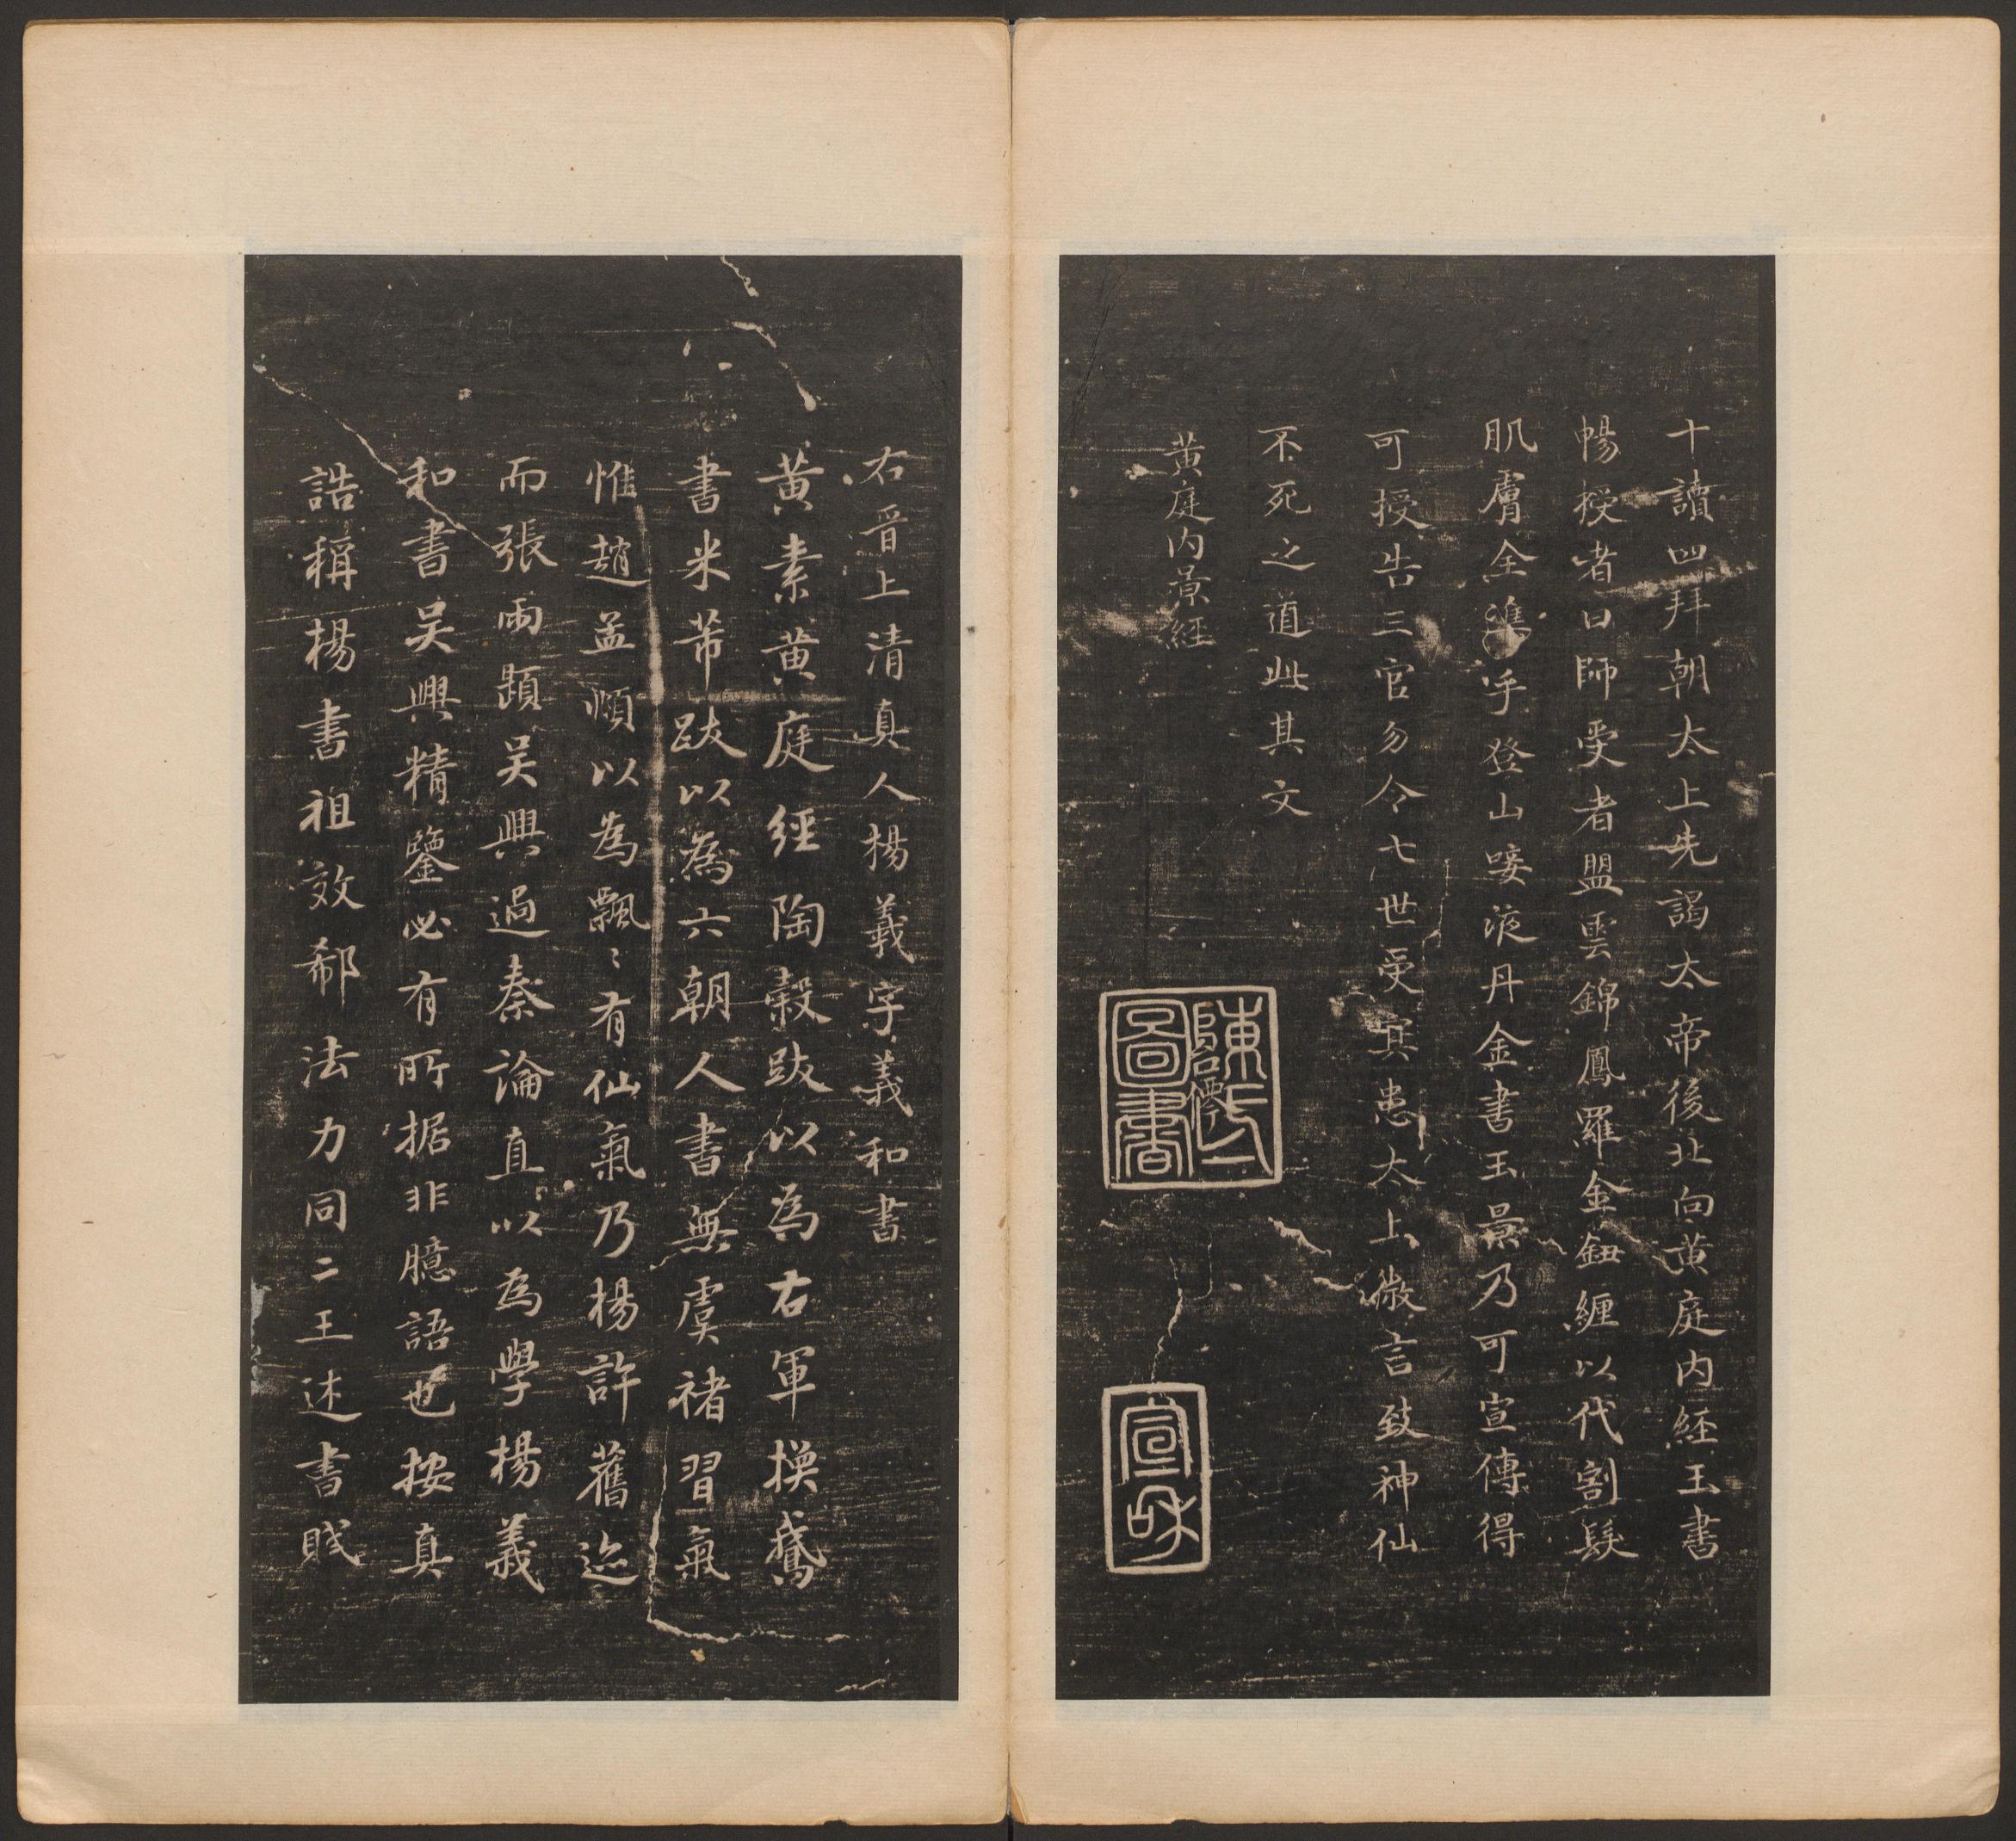 十讀四拜朝太上先謁太帝後北向黃庭内經玉書
暢授者曰師受者盟雲錦鳳羅金鈕纏以代割髮
肌膚全攜手登山唼液丹金書玉景乃可宣傳得
可授告三官勿令七世受冥患太上微言致神仙
不死之道此其文
黃庭内景經
圖書
宣和
右晉上清真人楊義字義和書
黃素黃庭經陶穀跋以為右軍換鵞
書米芾跋以為六朝人書無虞褚習氣
惟趙孟頫以為飄〻有仙氣乃楊許舊迹
而張雨題吴興過秦論直以為學楊義
和書吴興精鑒必有所据非臆語也按真
誥稱楊書祖效郗法力同二王述書賦